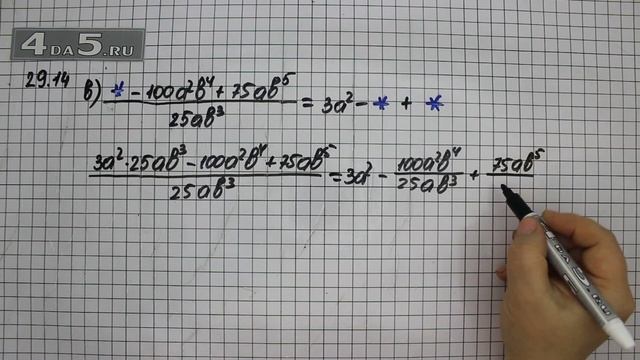 4DA5.RU
29.14 в) (* - 100a²b⁴ + 75ab⁵)/(25ab³) = 3a² - * + *
(3a²·25ab³ - 100a²b⁴ + 75ab⁵)/(25ab³) = 3a² - (100a²b⁴)/(25ab³) + 75ab⁵